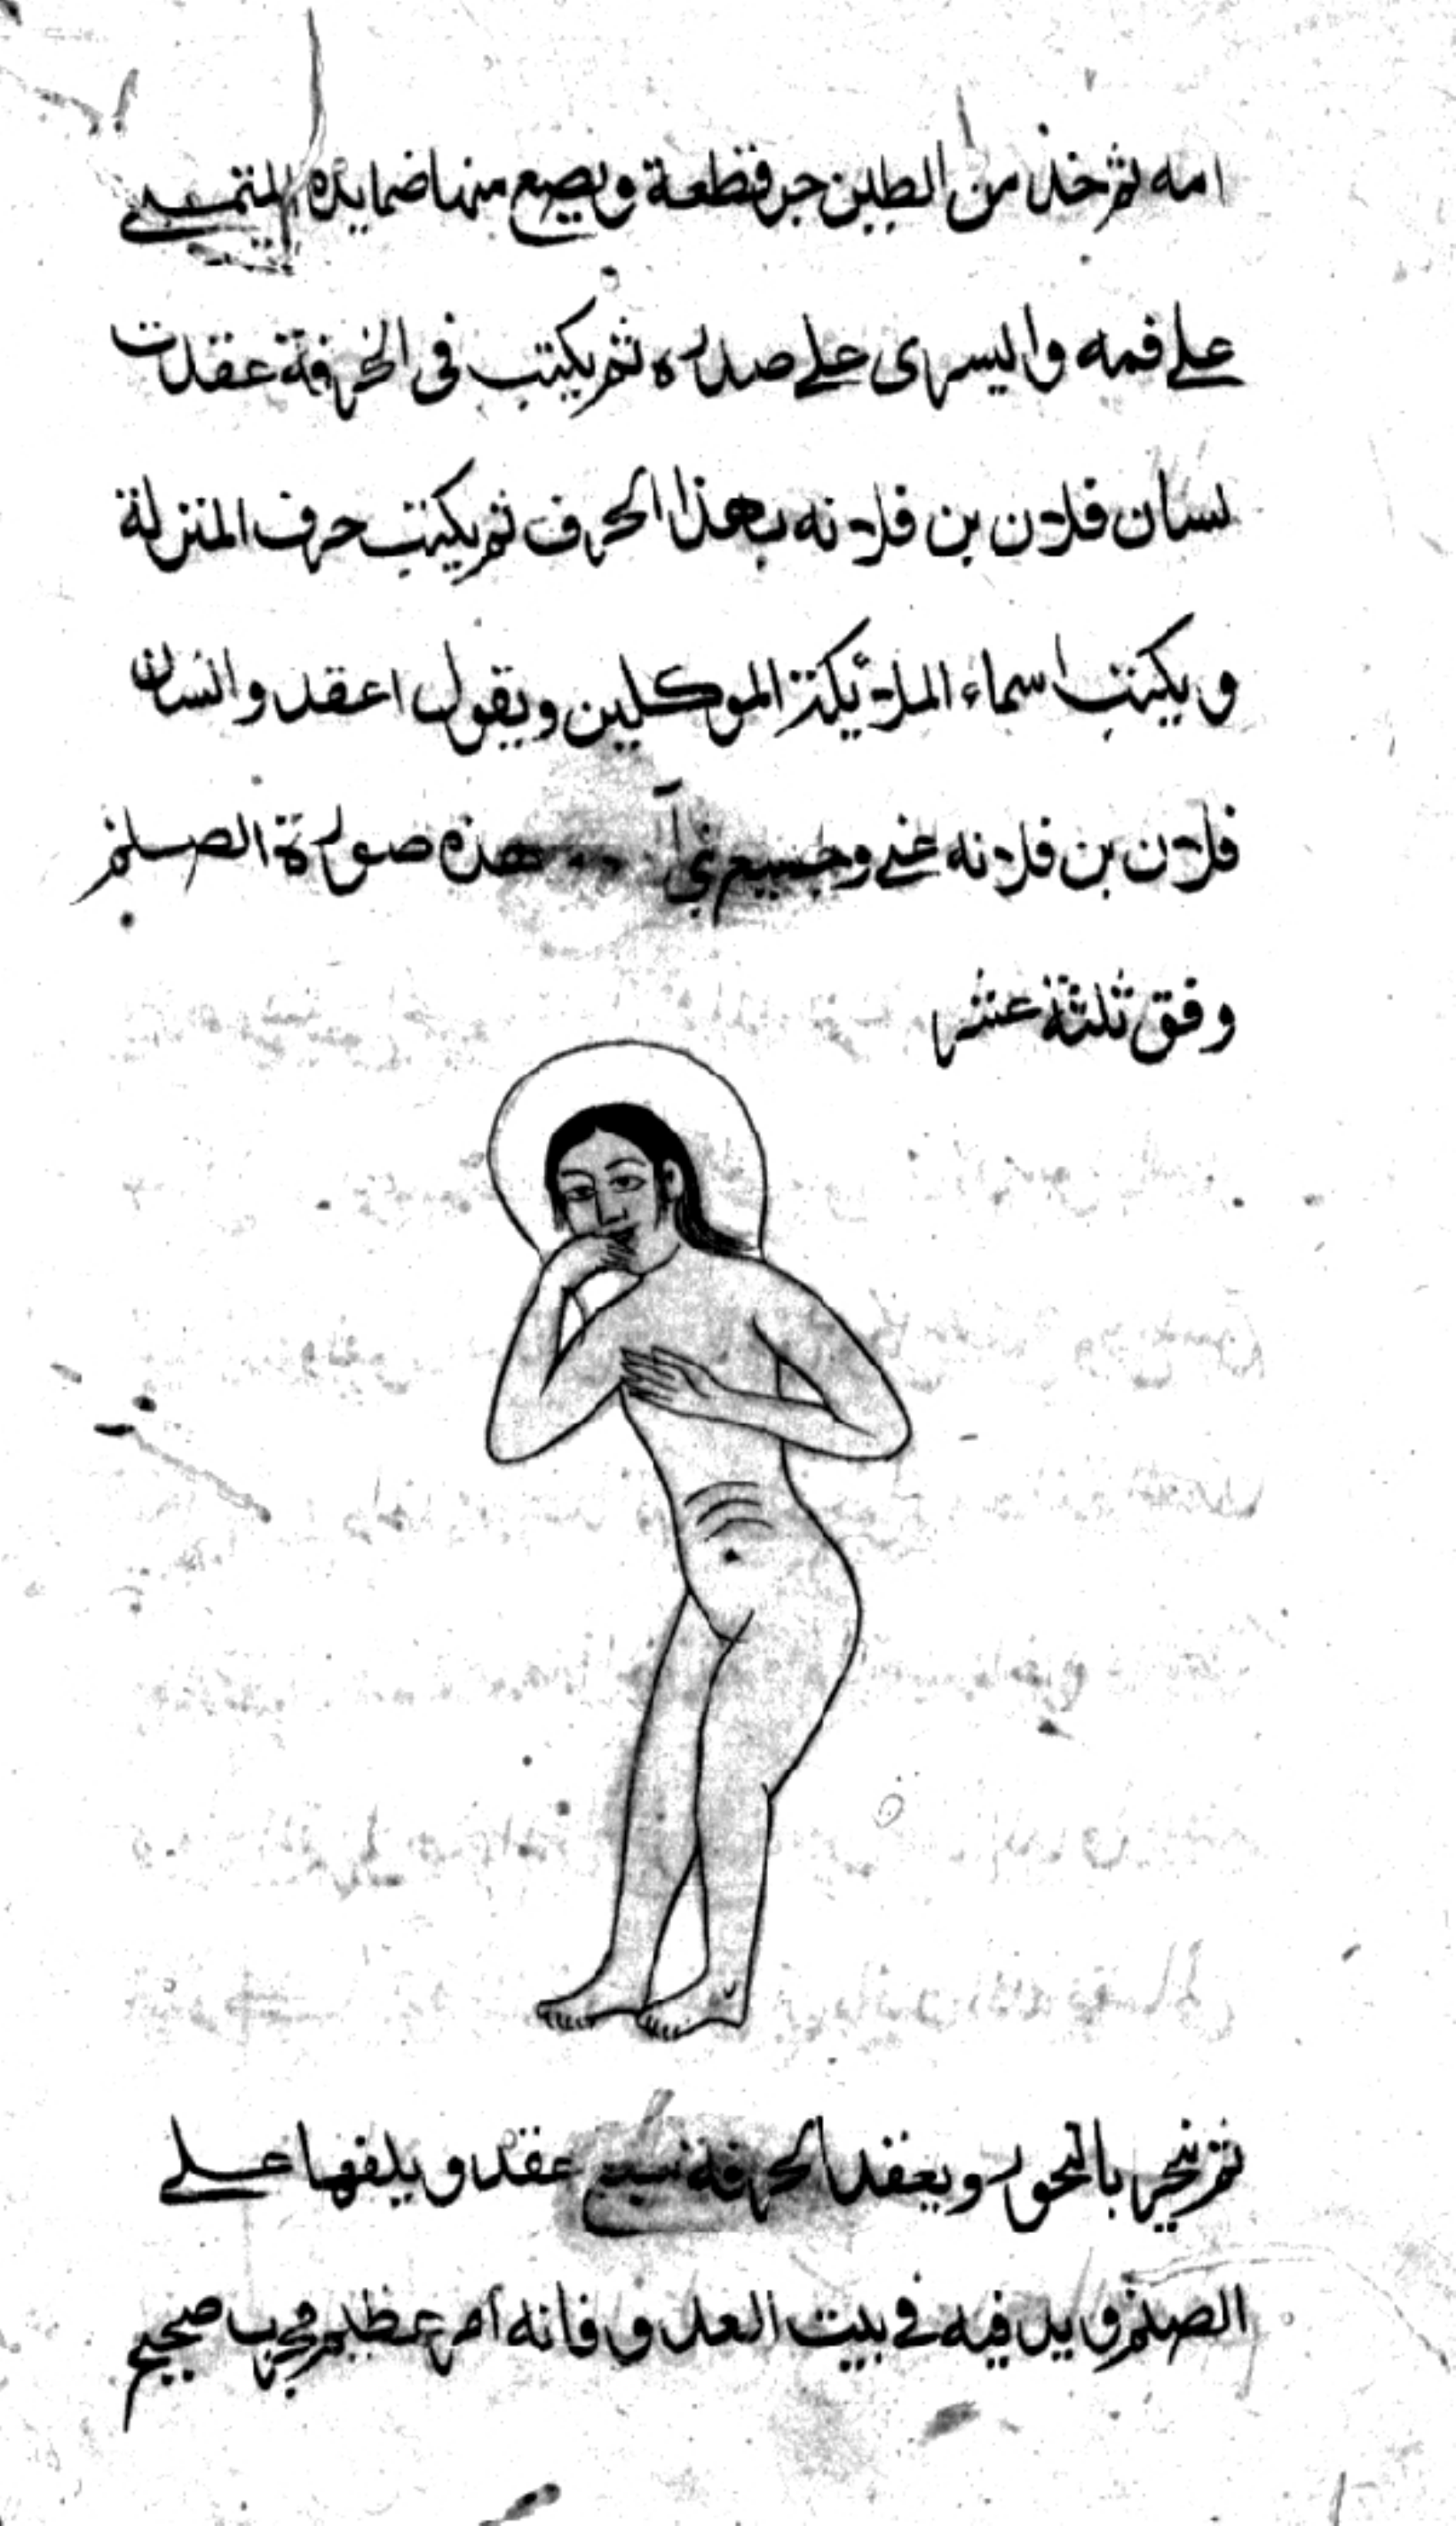 امه ثم خذ من الطين جز قطعة ويصع منها ضما يده اليمنى
على فمه واليسرى على صدره ثم يكتب فى الخرقة عقدت
لسان فلان بن فلانه بهذا الحرف ثم يكتب حرف المنزلة
و يكتب اسماء الملائكة الموكلين ويقول اعقدوا لسان
فلان بن فلانه عني وجميع هذه صورة الصلم
وفق ثلثة عشر
ثم يبخر بالبخور ويعقد الخرقة سبع عقد ويلفها على
الصنم ويدفيه في بيت العدو فانه امر عظيم مجرب صحيح